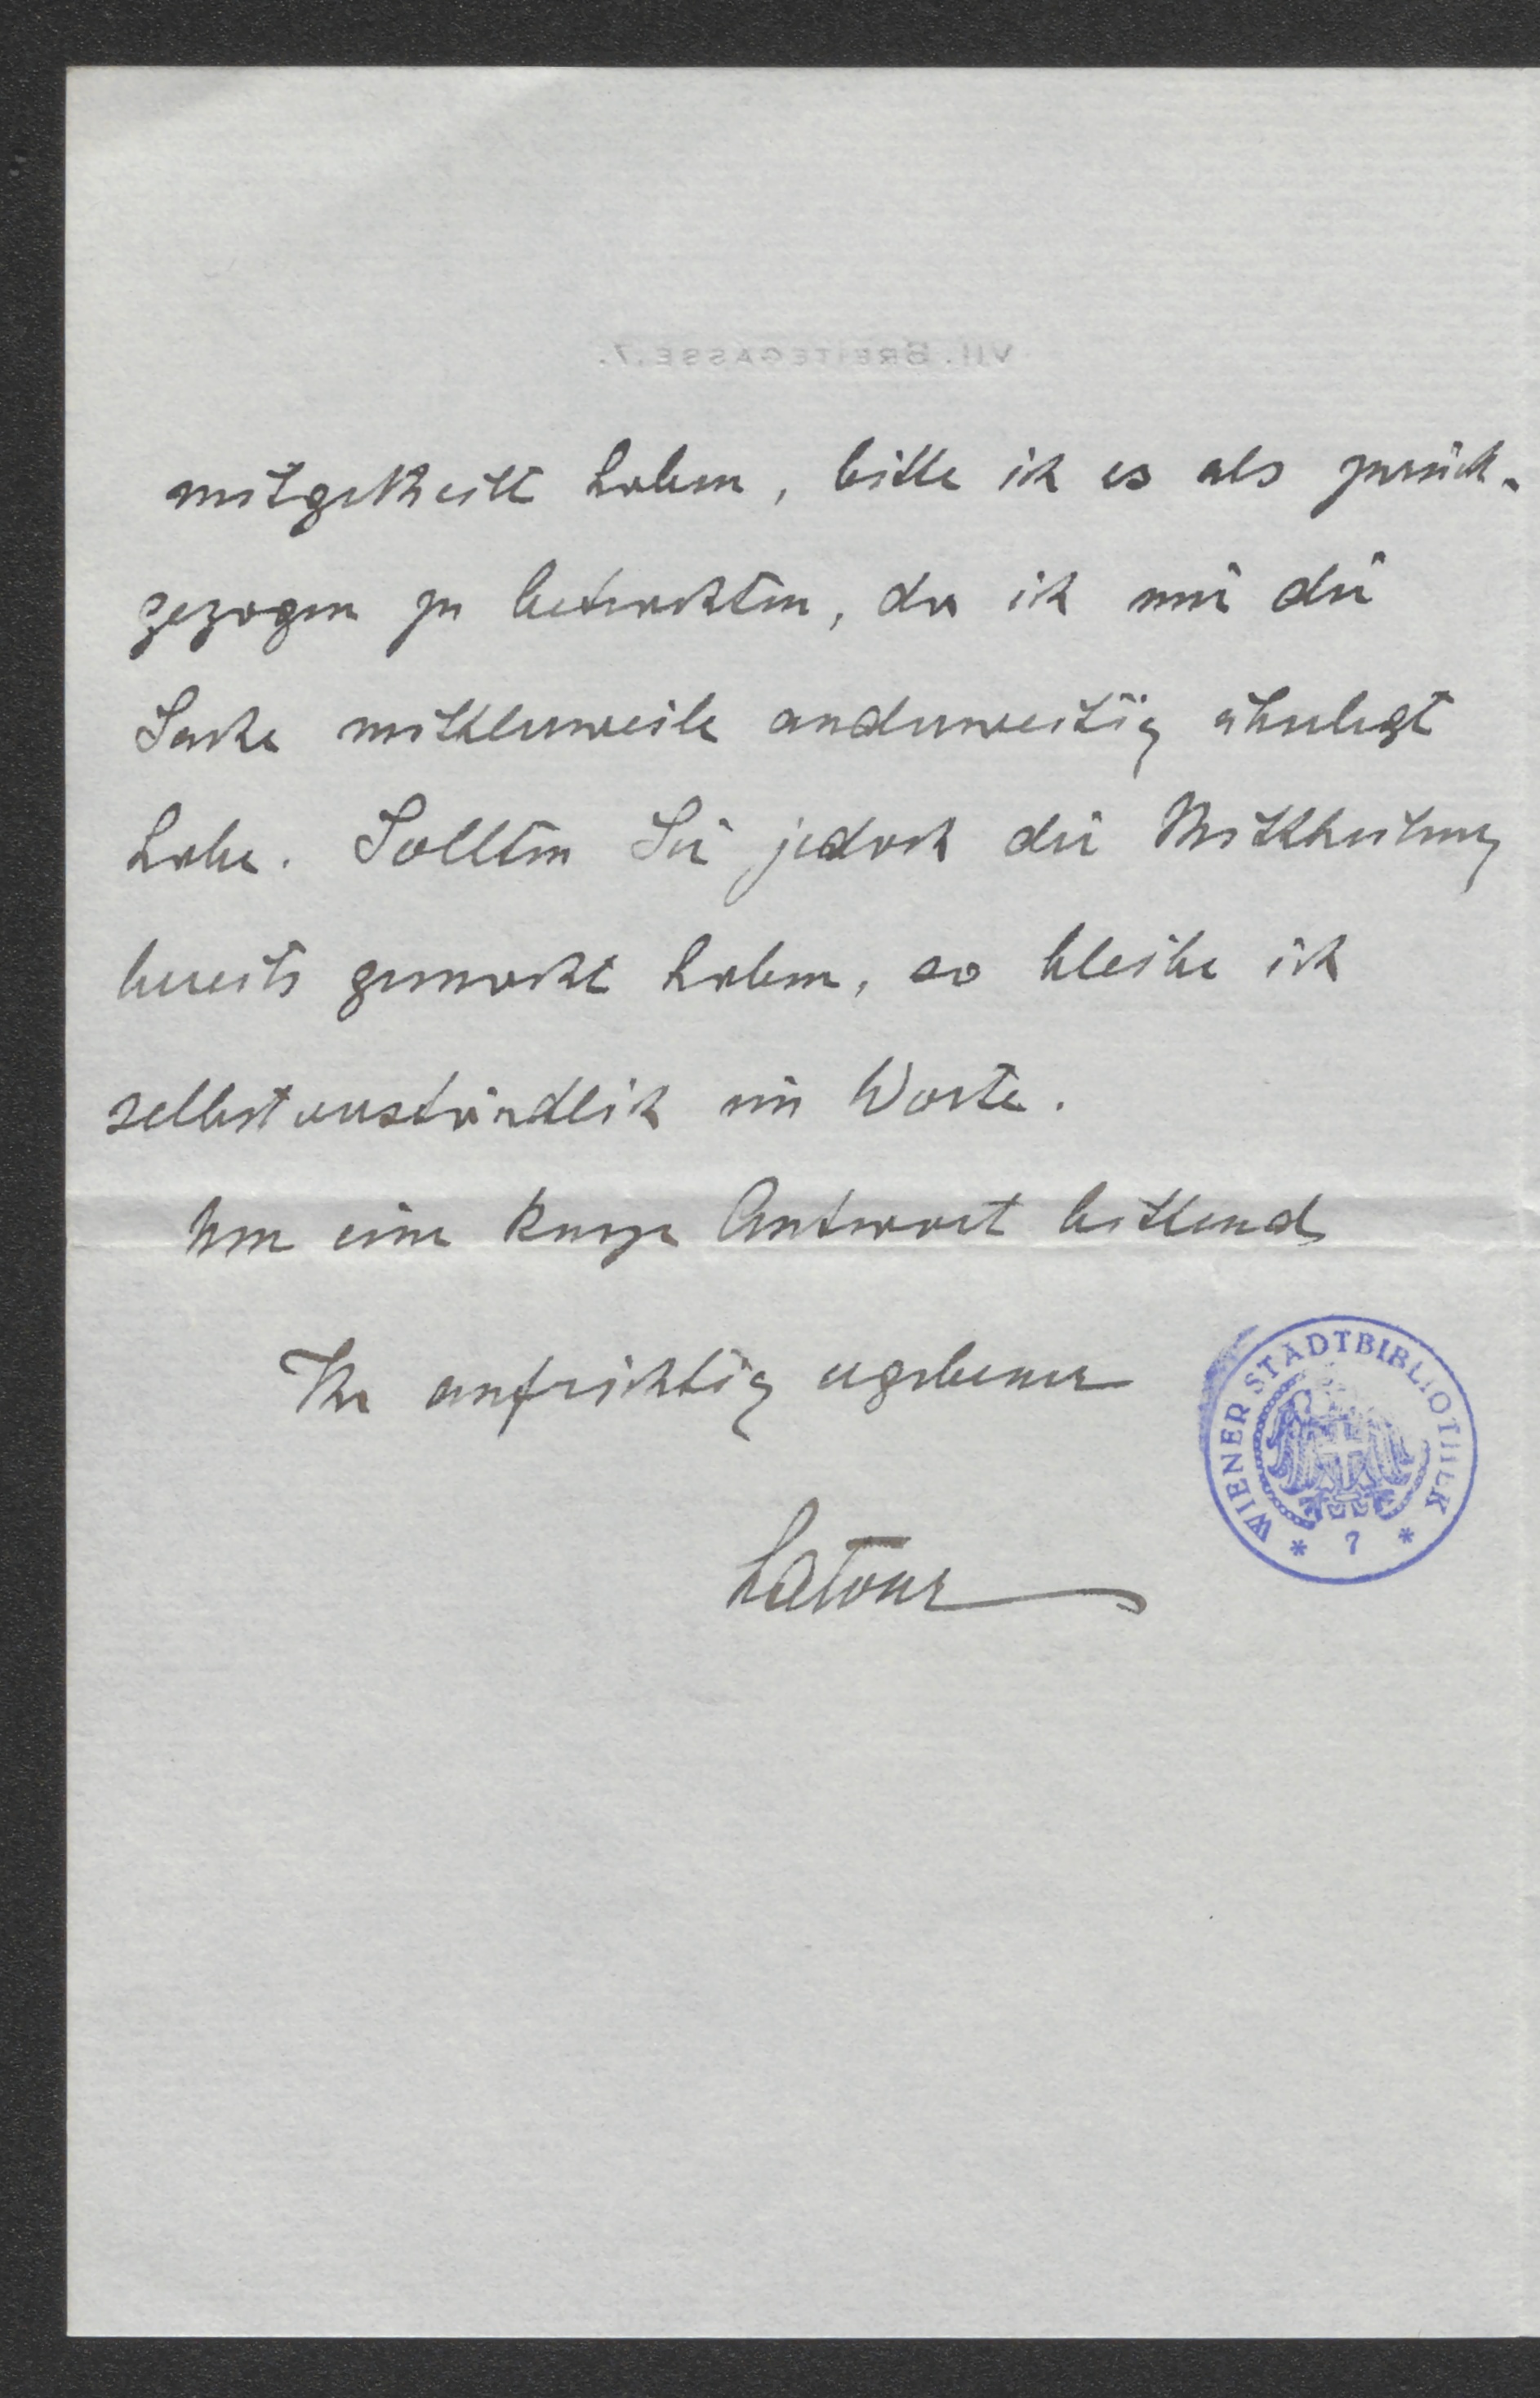 VII. BREITEGASSE. 7.
mitgetheilt haben, bitte ich es als zurück-
gezogen zu betrachten, da ich mir die
Sache mittlerweile anderweitig überlegt
habe. Sollten Sie jedoch die Mittheilung
bereits gemacht haben, so bleibe ich
selbstverständlich im Worte.
Um eine kurze Antwort bittend
Ihr aufrichtig ergebener
Latour
WIENER STADTBIBLIOTHEK
* 7 *